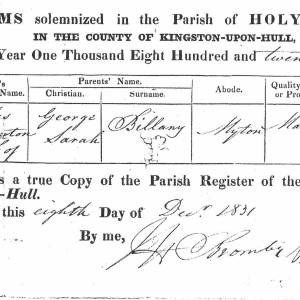 MS solemnized in the Parish of HOLY
IN THE COUNTY OF KINGSTON-UPON-HULL,
Year One Thousand Eight Hundred and twen
's Name. Parents' Name. Abode. Quality or Prof
Christian. Surname.
George Sarah Billany Myton Ma
of
s a true Copy of the Parish Register of the
-Hull.
this eighth Day of Decr 1831
By me,